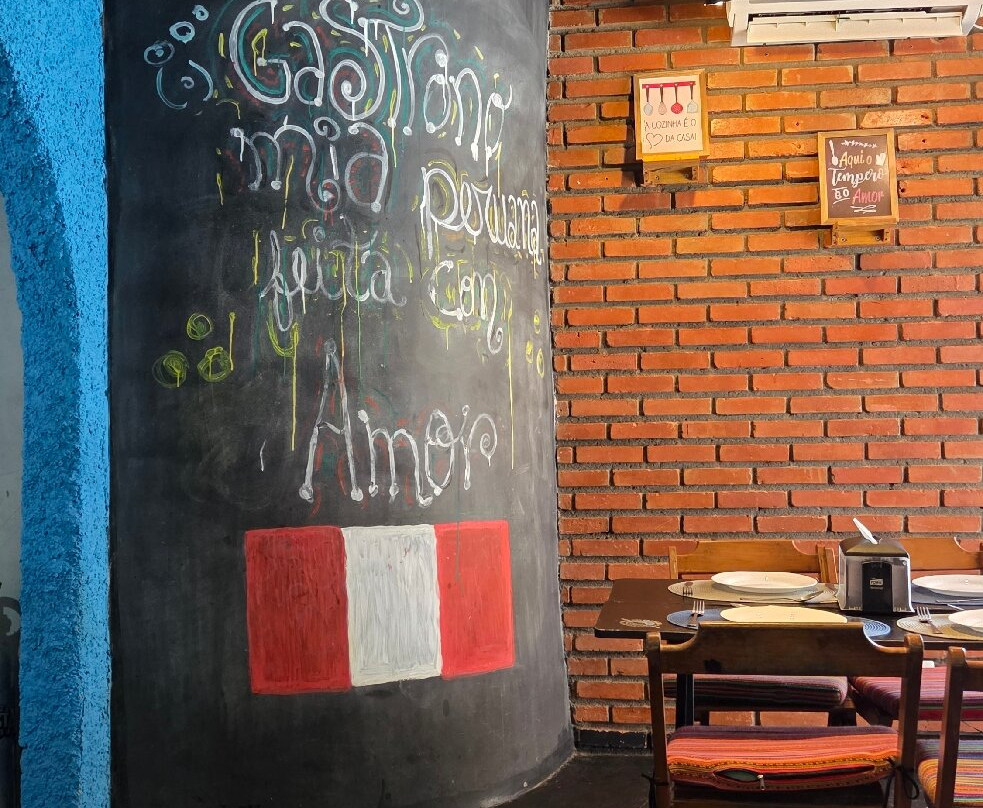 GaSTronp
mia
peruana
feita con
Amor
A COZINHA É O
DA CASA!
Aqui o
Tempero
é o Amor